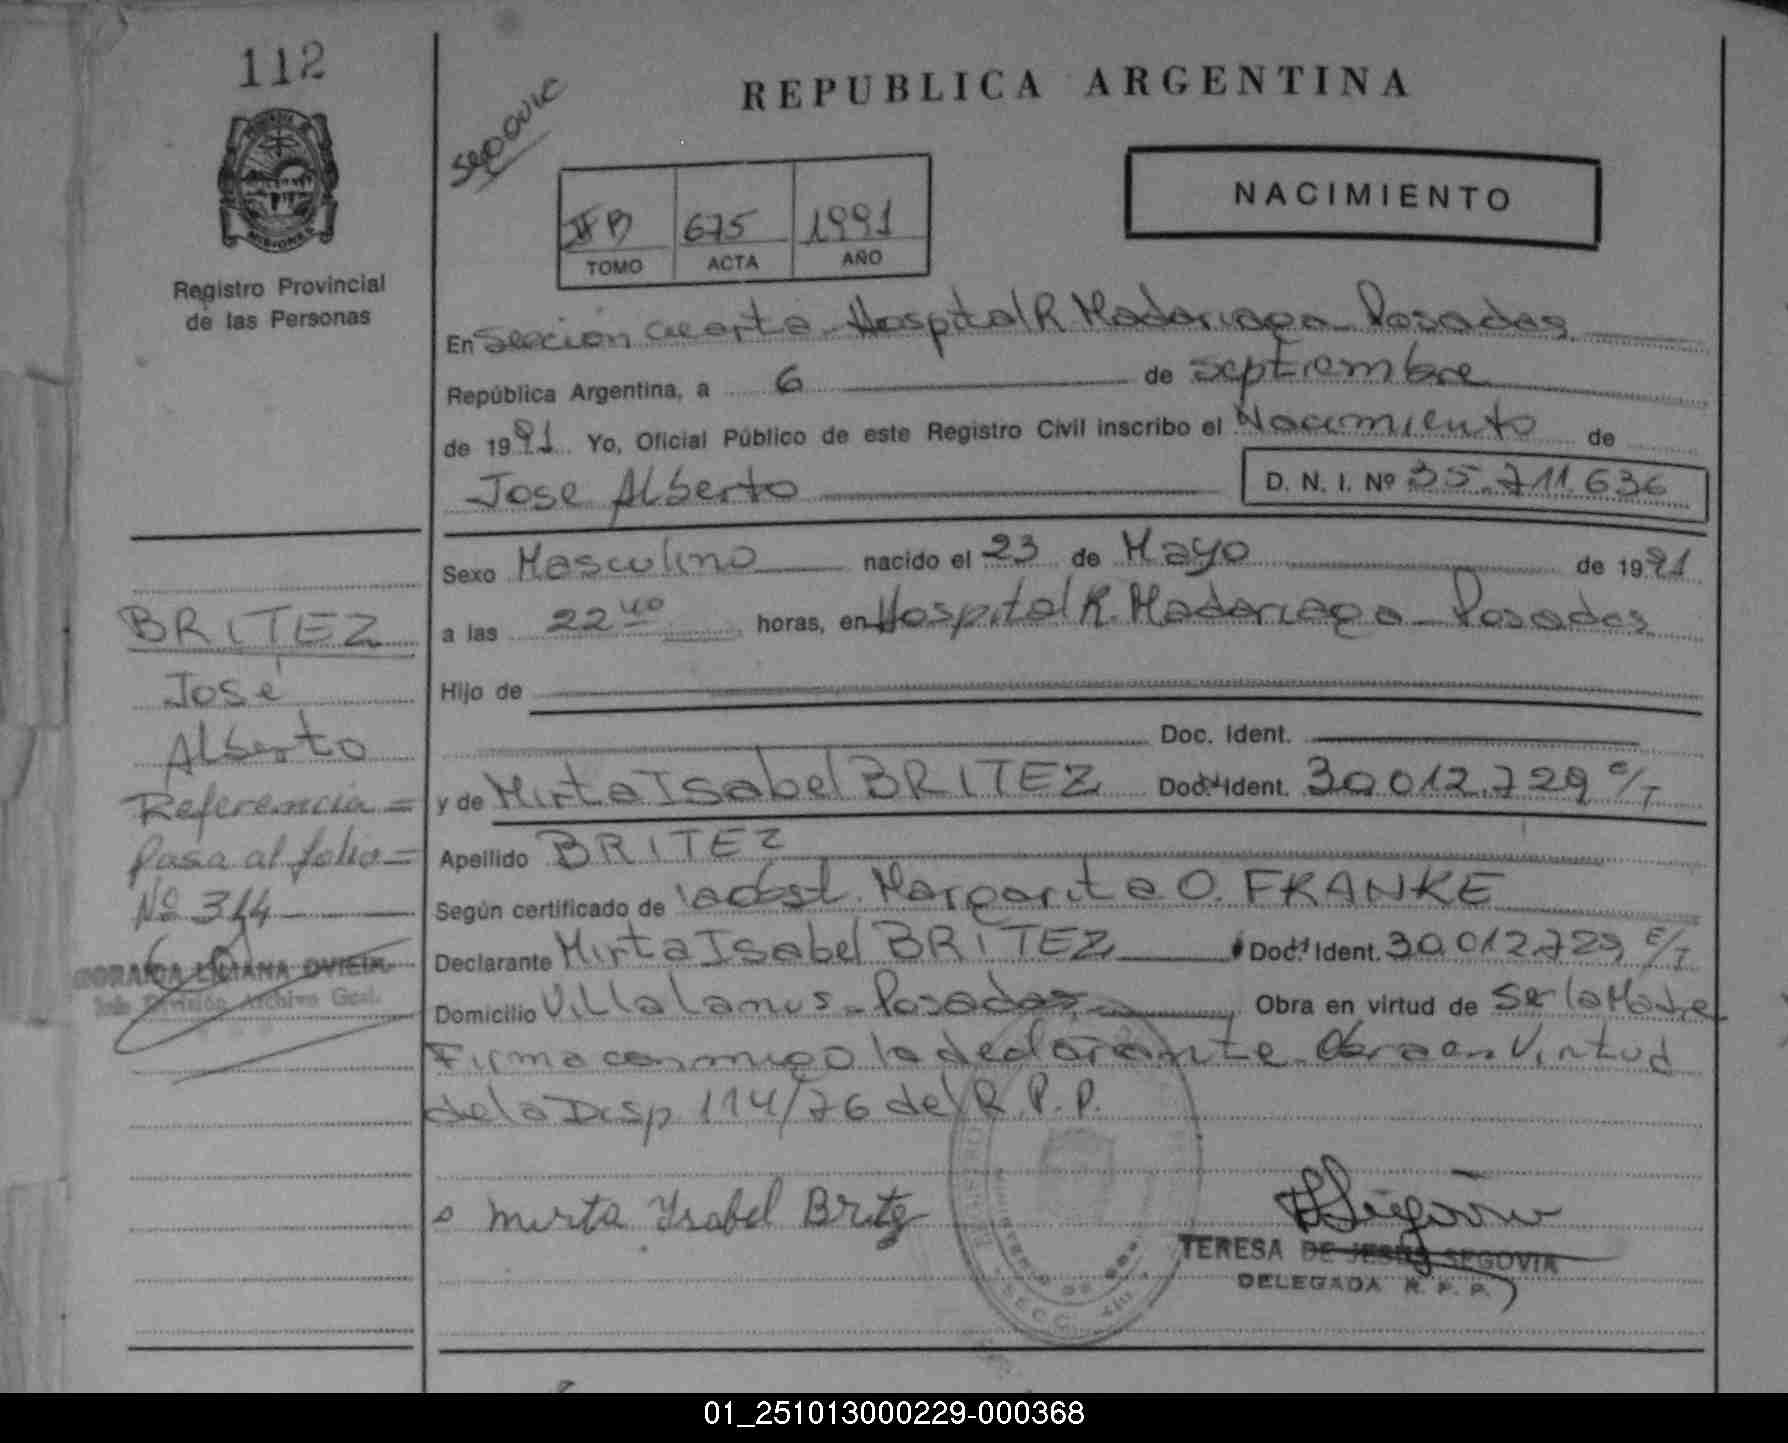 112
REPUBLICA ARGENTINA
NACIMIENTO
II B 675 1991
TOMO ACTA AÑO
Registro Provincial
de las Personas
En Sección Cuarta - Hospital R. Madariaga - Posadas
República Argentina, a 6 de septiembre
de 1991. Yo, Oficial Público de este Registro Civil inscribo el Nacimiento de
Jose Alberto D. N. I. Nº 35.711.636
Sexo Masculino nacido el 23 de Mayo de 1991
a las 22 40 horas, en Hospital R. Madariaga - Posadas
Hijo de
Doc. Ident.
y de Mirta Isabel BRITEZ Doc. Ident. 30.012.729 C/T
Apellido BRITEZ
Según certificado de obst. Margarita O. FRANKE
Declarante Mirta Isabel BRITEZ Doc. Ident. 30.012.729 C/T
Domicilio Villa Lanus - Posadas Obra en virtud de Ser la Madre
Firma conmigo la declarante. Obra en Virtud
de la Disp 114/76 del R.P.P.
Mirta Ysabel Britez
TERESA DE JESUS SEGOVIA
DELEGADA R. P. P.
BRITEZ
José
Alberto
Referencia =
Pasa al folio =
Nº 314
LILIANA
Jefe División Archivo Gral.
01_251013000229-000368